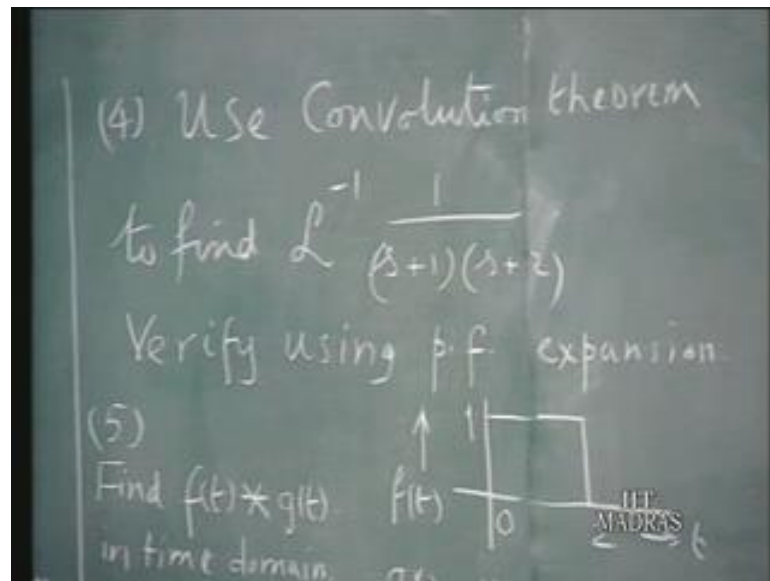 (4) Use Convolution theorem
to find ℒ⁻¹ 1/((s+1)(s+2))
Verify using p.f. expansion.
(5)
Find f(t)*g(t). f(t) 1 0 t
in time domain.
IIT
MADRAS